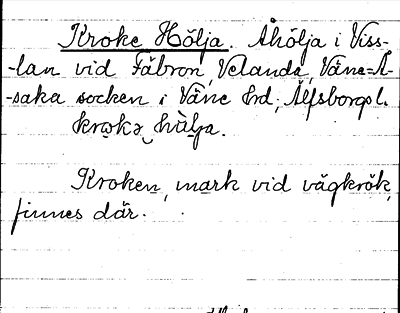 Kroke Hölja. Åhölja i Viss-
-lan vid Fåbron, Velanda, Väne-Å-
-saka socken i Väne hrd, Älfsborgs l.
Kroken, mark vid vägkrök,
finnes där.